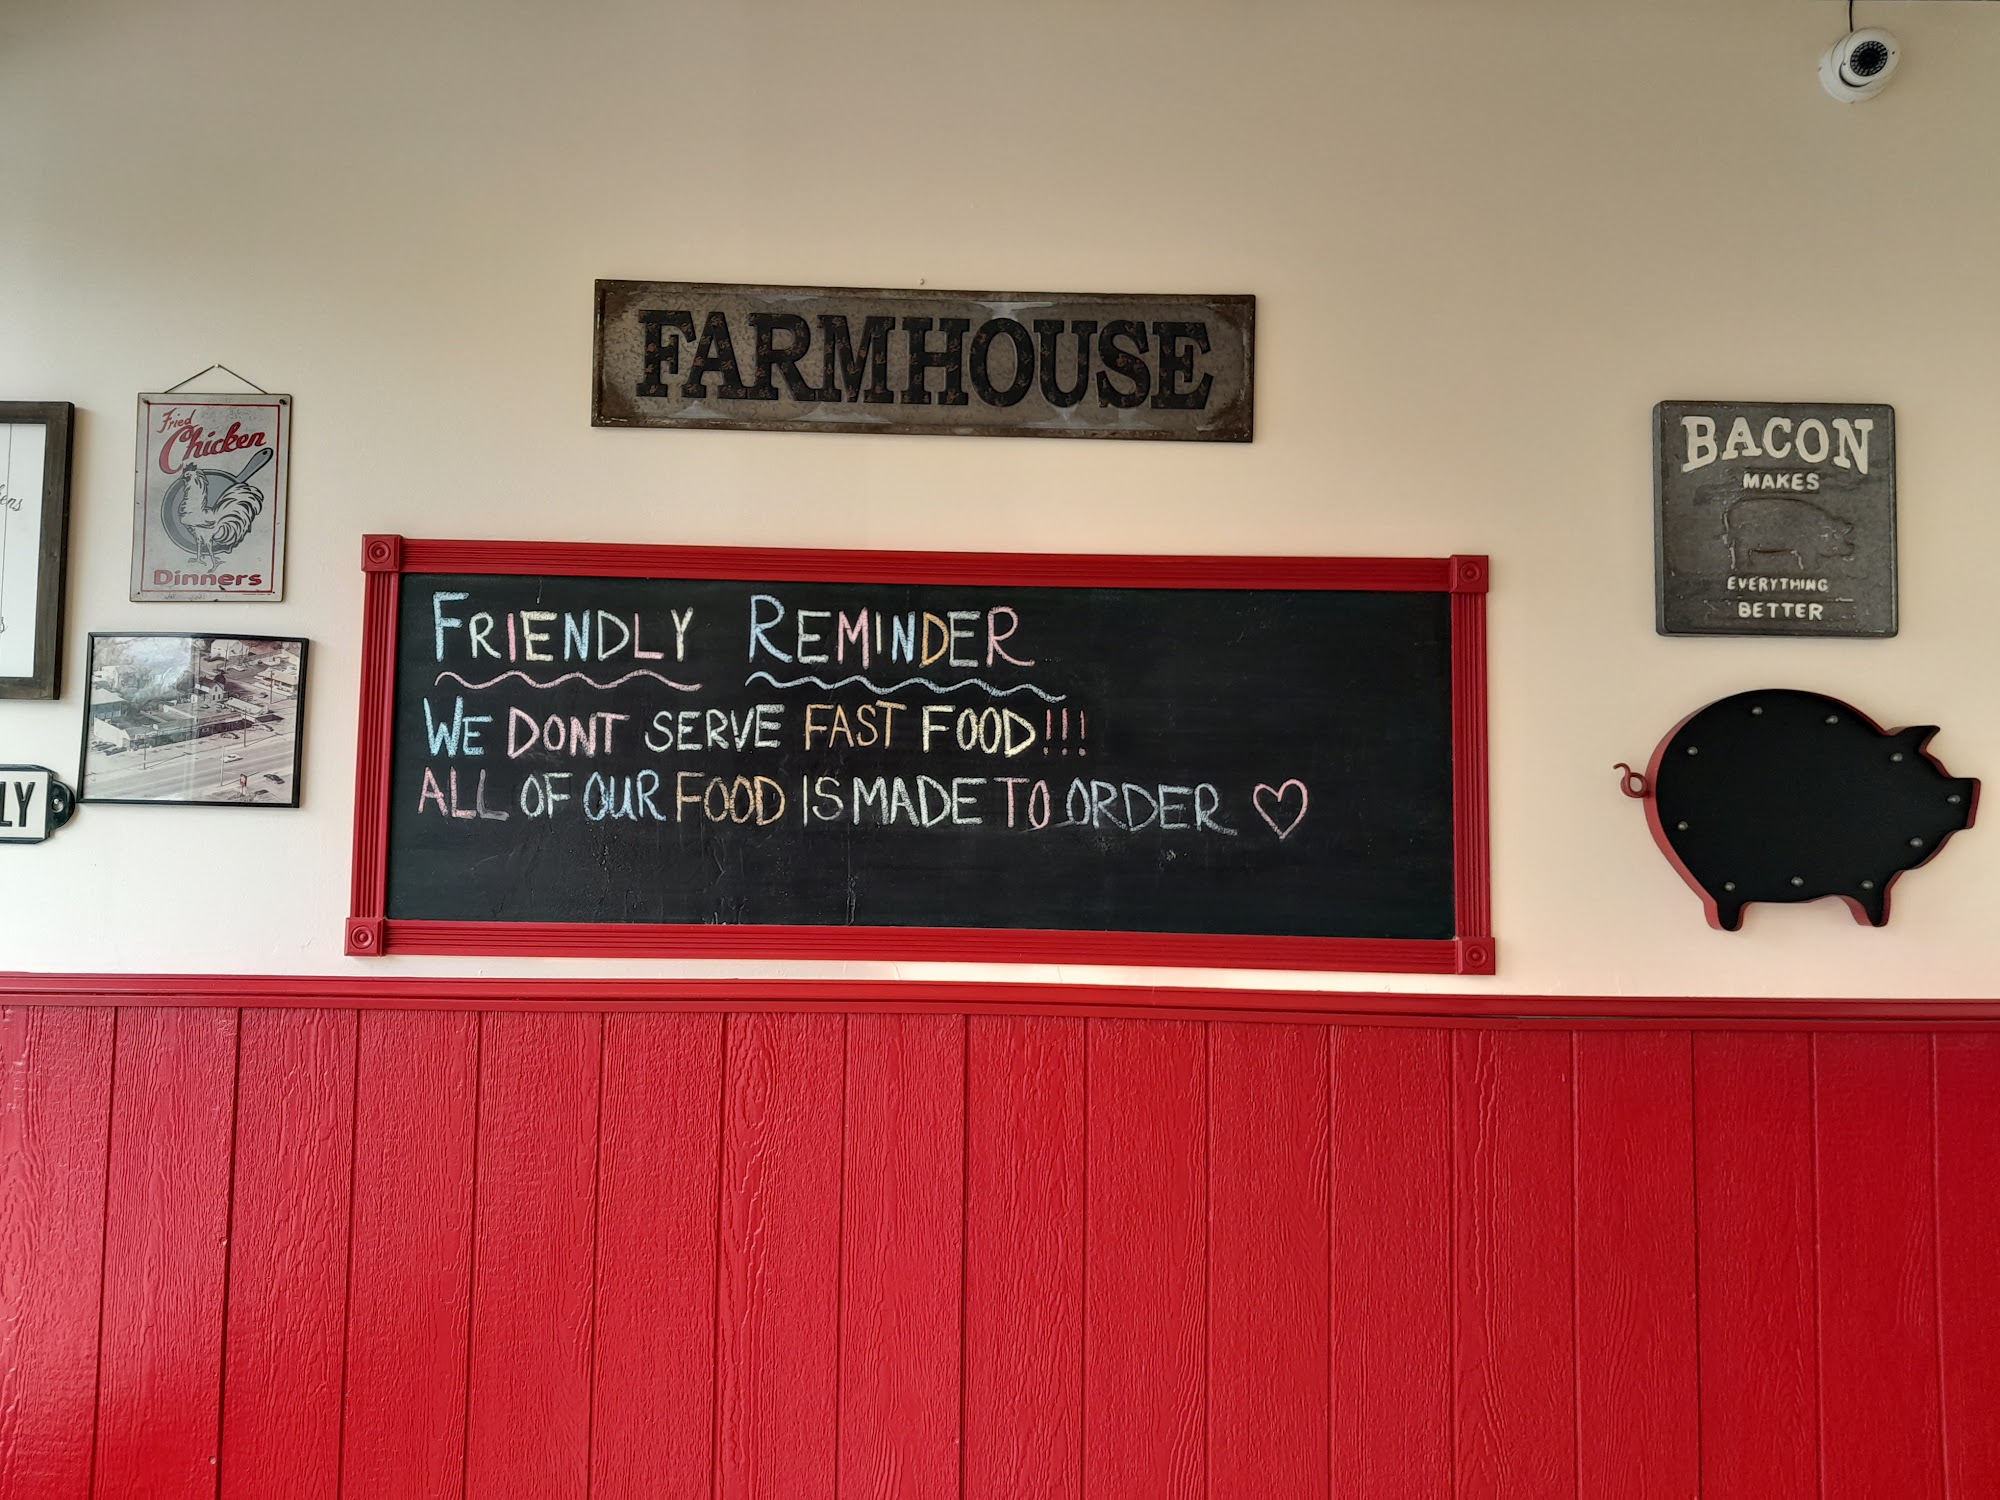 FARMHOUSE
Fried
Chicken
Dinners
BACON
MAKES
EVERYTHING
BETTER
FRIENDLY REMINDER
WE DONT SERVE FAST FOOD!!!
ALL OF OUR FOOD IS MADE TO ORDER ♡
LY